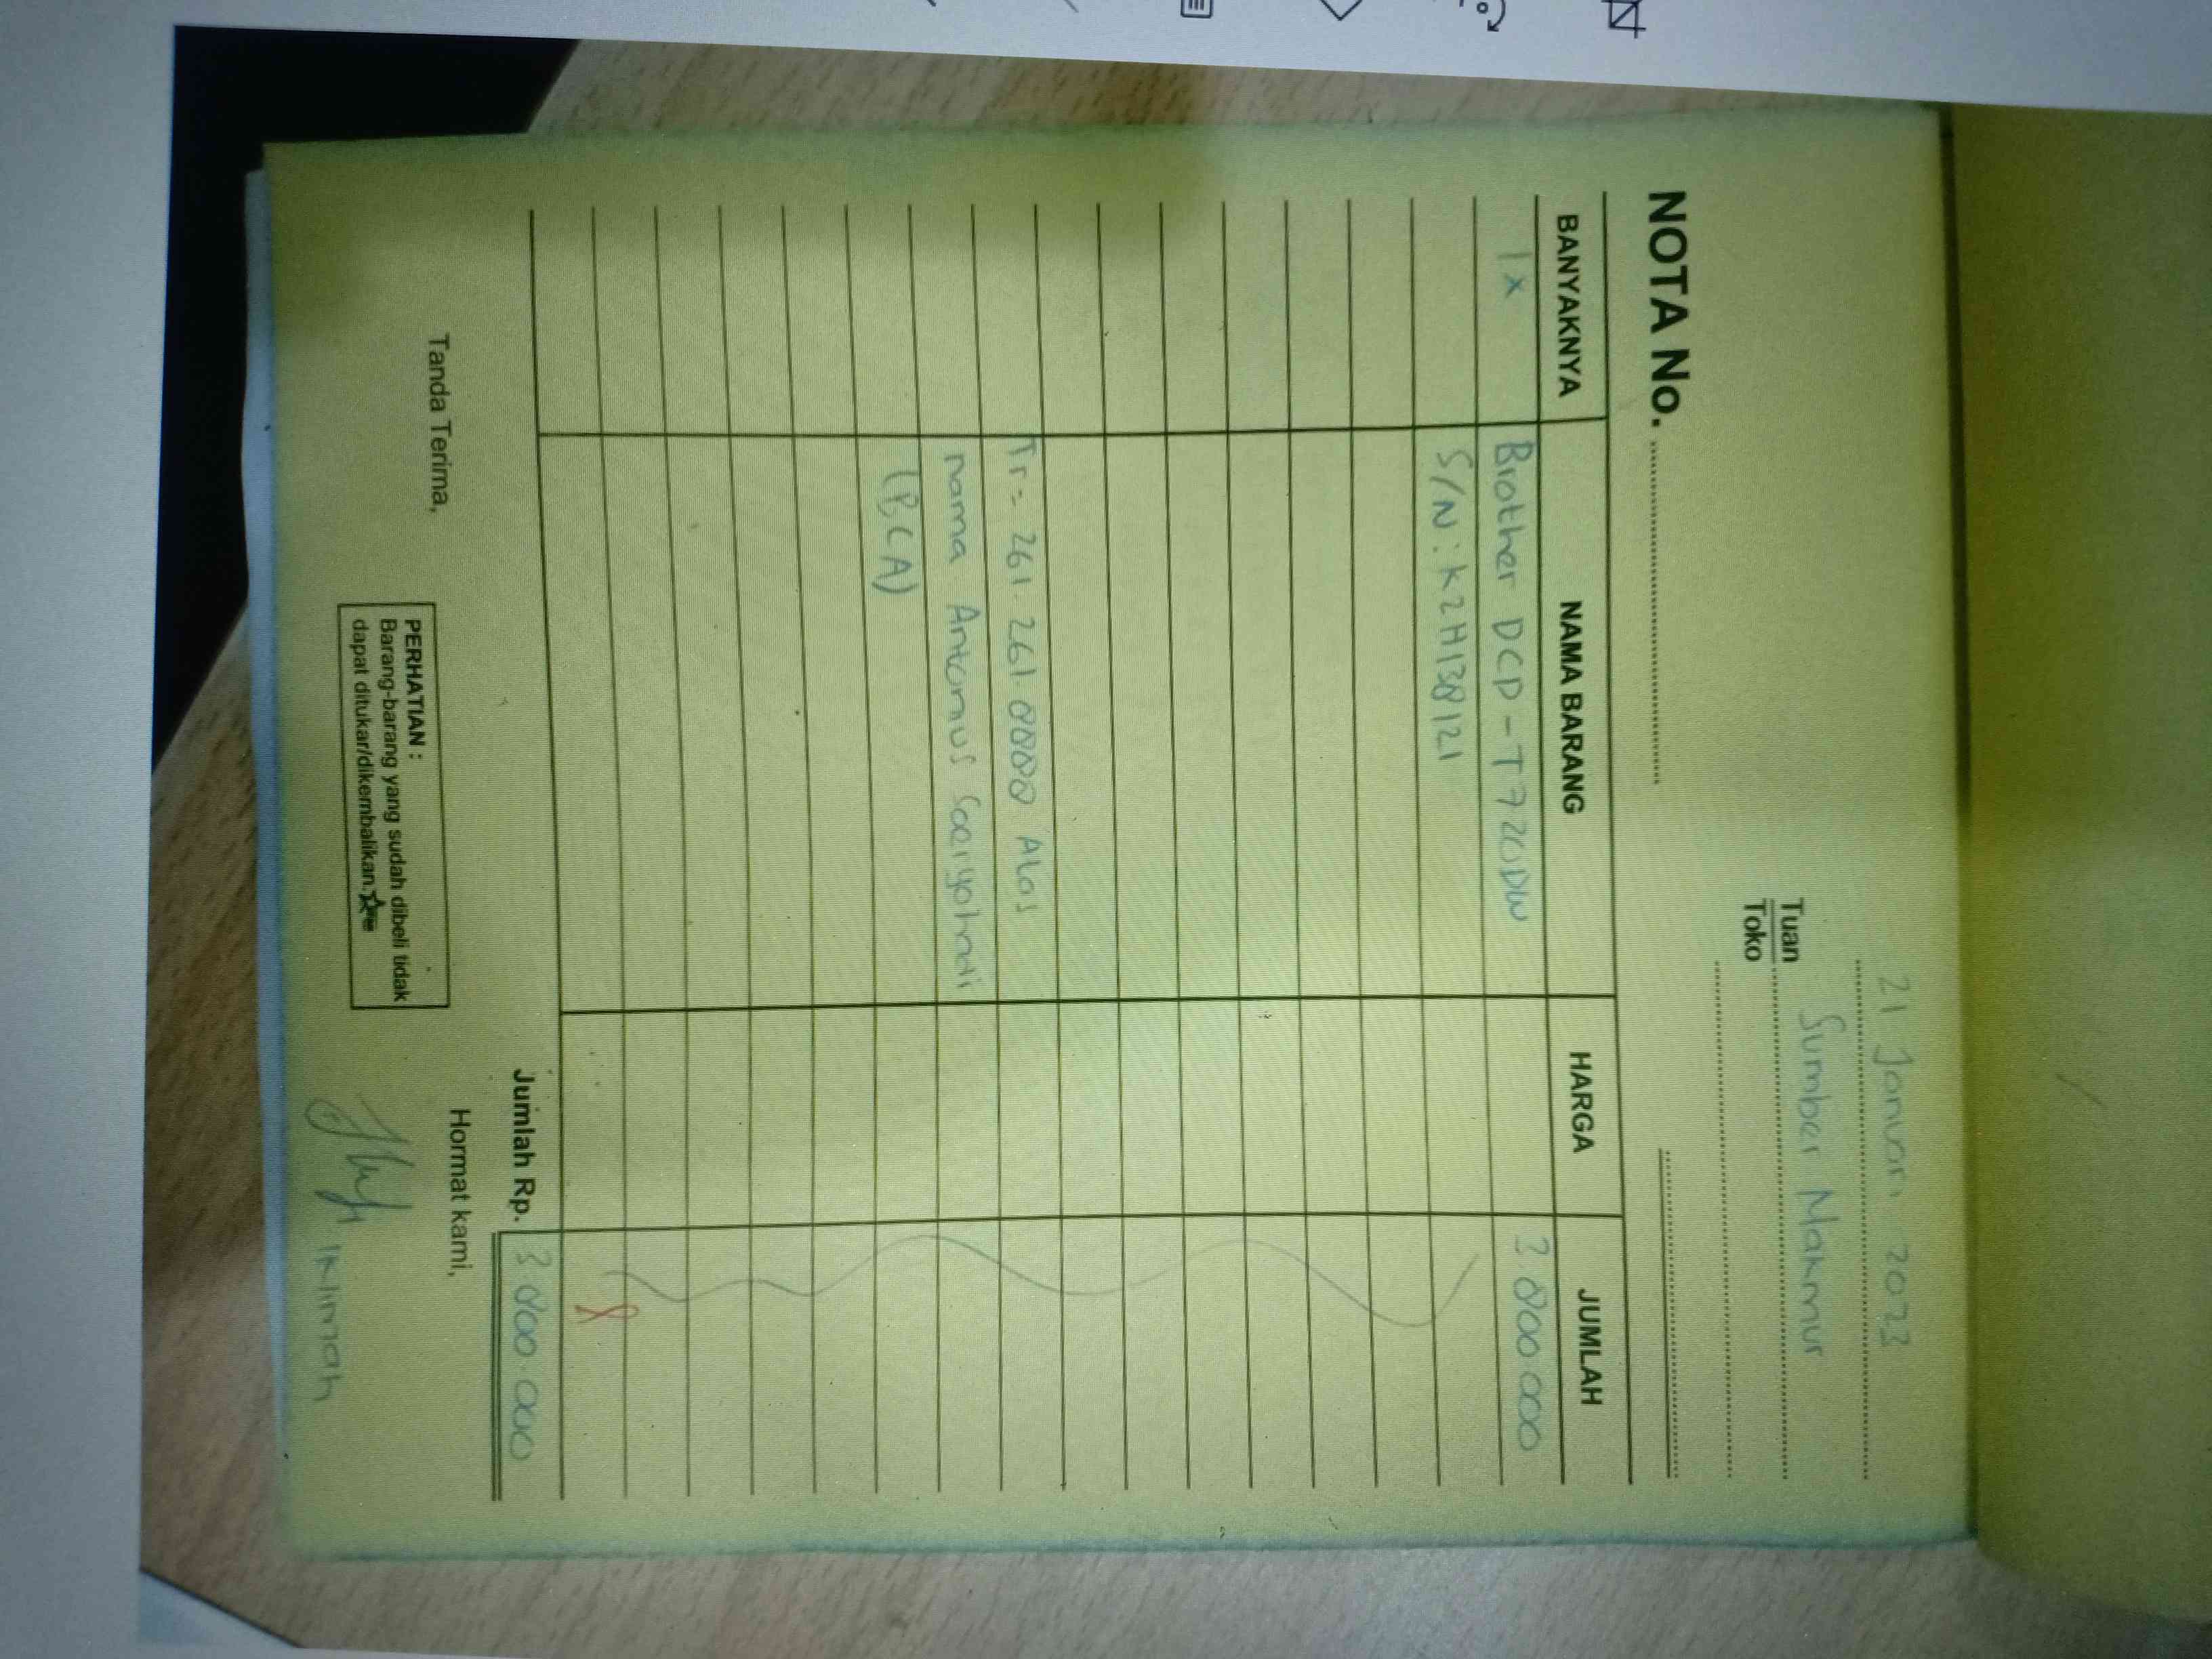 21 Januari 2023
Tuan
Toko
Sumber Makmur
NOTA No.
BANYAKNYA NAMA BARANG HARGA JUMLAH
1x Brother DCP-T720DW 3.800.000
S/N: K2H138121
Tr= 261.261.8888 Alas
nama Antonius Soeriyohadi
(BCA)
Jumlah Rp. 3.800.000
Tanda Terima,
Hormat kami,
PERHATIAN :
Barang-barang yang sudah dibeli tidak
dapat ditukar/dikembalikan.
Iklimah